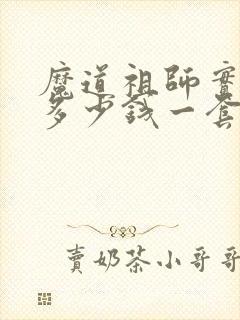 魔道祖師實
多少錢一套
賣奶茶小哥哥